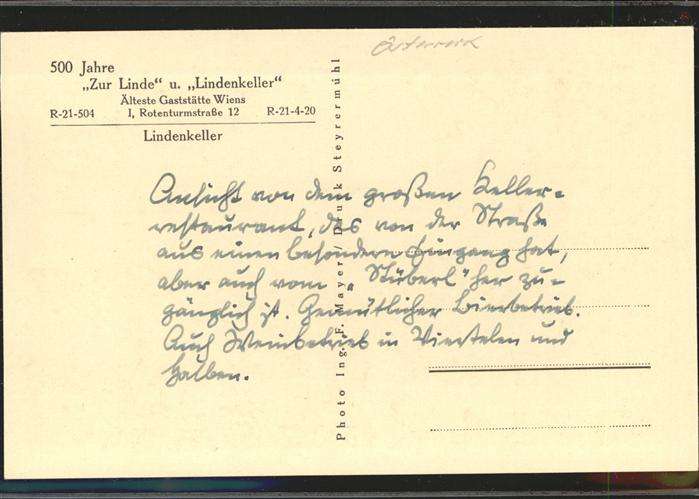 Österreich
500 Jahre
„Zur Linde“ u. „Lindenkeller“
Älteste Gaststätte Wiens
R-21-504 I, Rotenturmstraße 12 R-21-4-20
Lindenkeller
Ansicht von dem großen Keller-
restaurant, das von der Straße
aus einen besondern Eingang hat,
aber auch vom „Stüberl“ her zu-
gänglich ist. Gemütlicher Bierbetrieb.
Auch Weinbetrieb in Vierteln und
Halben.
Photo Ing. F. Mayer / Druck Steyrermühl